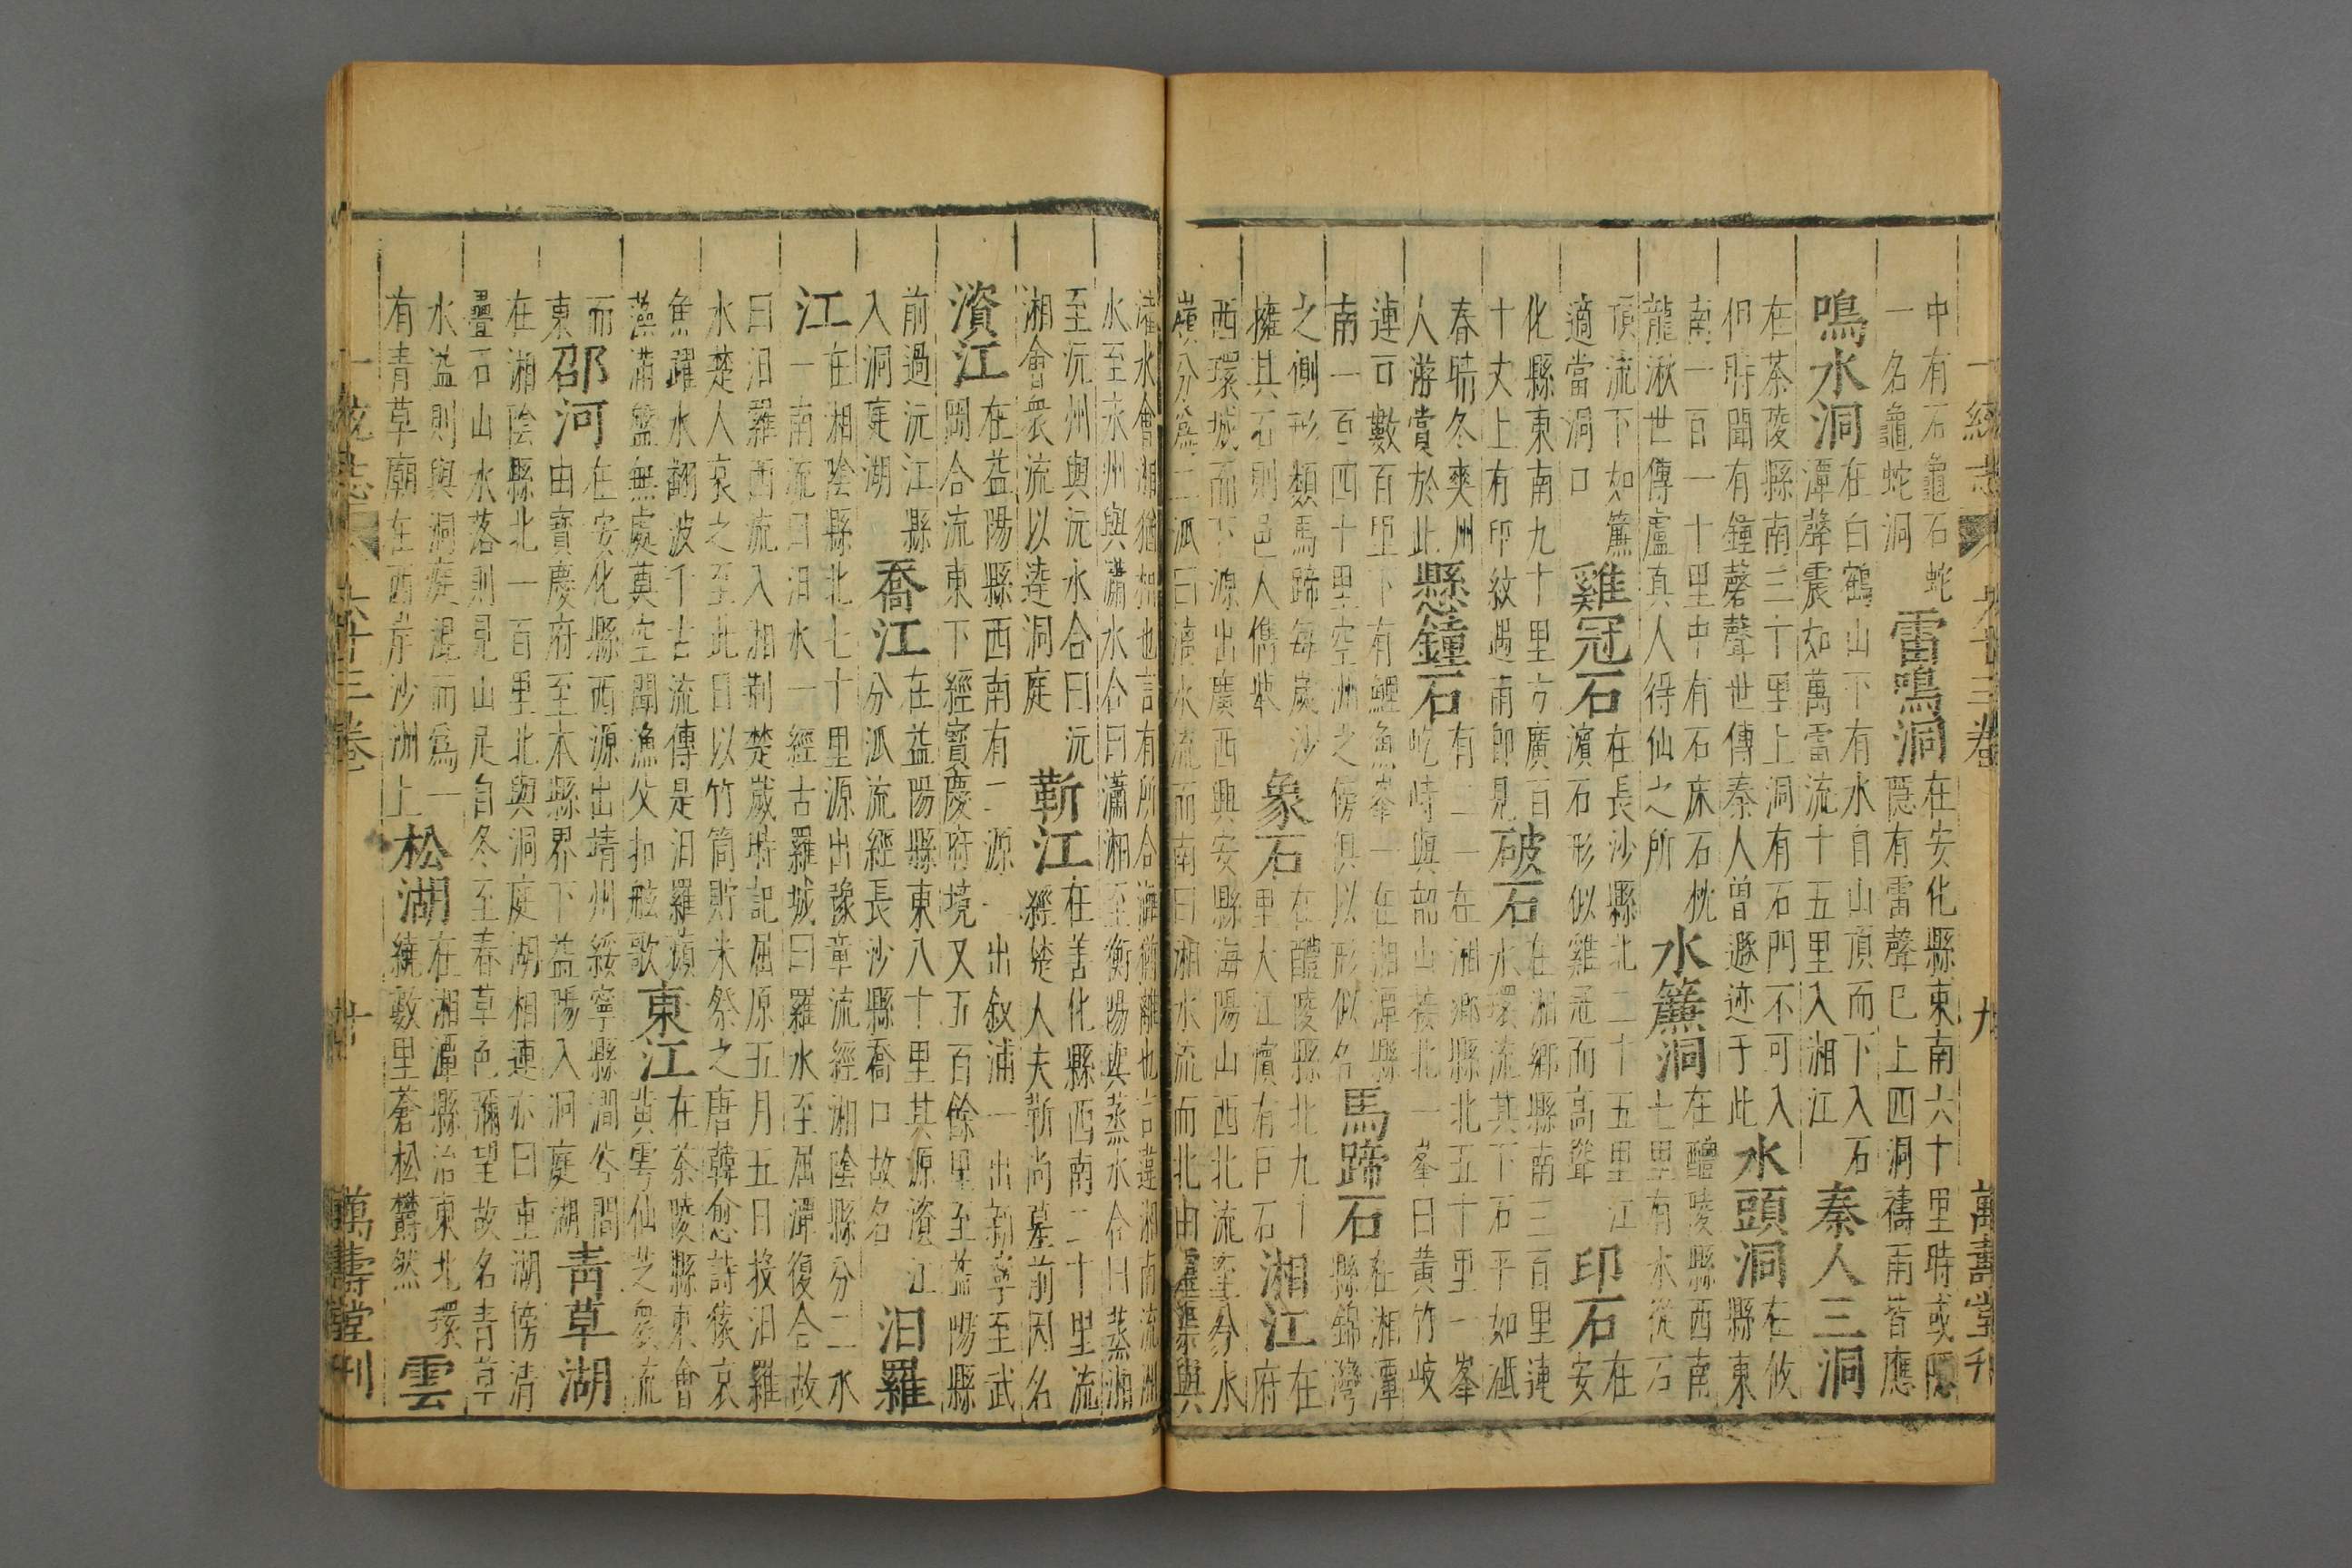 一統志 六十三卷 九 萬壽堂刊
中有石龜石蛇
一名龜蛇洞
雷鳴洞
在安化縣東南六十里時或隱
隱有雷聲已上四洞禱雨皆應
鳴水洞
在白鶴山下有水自山頂而下入石
潭聲震如萬雷流十五里入湘江
秦人三洞
在茶陵縣南三十里上洞有石門不可入
但時聞有鐘磬聲世傳秦人曾遯迹于此
水頭洞
在攸
縣東
南一百一十里中有石床石枕
龍湫世傳盧真人得仙之所
水簾洞
在醴陵縣西南
七里有水從石
頂流下如簾
適當洞口
雞冠石
在長沙縣北二十五里江
濱石形似雞冠而高聳
印石
在
安
化縣東南九十里方廣百
十丈上有印紋遇雨即見
破石
在湘鄉縣南三百里連
水環流其下石平如砥
春晴冬爽州
人游賞於此
懸鐘石
有二一在湘鄉縣北五十里一峯
屹峙與韶山接北一峯曰黃竹岐
連可數百里下有鯉魚峯一在湘潭縣
南一百四十里空洲之傍俱以形似名
馬蹄石
在湘潭
縣錦灣
之側形類馬蹄每歲沙
擁其石則邑人儁裝
象石
在醴陵縣北九十
里大江濱有巨石
湘江
在
府
西環城而下源出廣西興安縣海陽山西北流至分水
嶺分爲二派曰漓水流而南曰湘水流而北由靈渠與
灌水會湘猶相也言有所合漓猶離也言違湘南流湘
水至永州與瀟水合曰瀟湘至衡陽與蒸水合曰蒸湘
至沅州與沅水合曰沅
湘會衆流以達洞庭
靳江
在善化縣西南二十里流
經楚人夫靳尚墓前因名
濱江
在益陽縣西南有二源一出敘浦一出新寧至武
岡合流東下經寳慶府境又五百餘里至益陽縣
前過沅江縣
入洞庭湖
喬江
在益陽縣東八十里其源濱江
分派流經長沙縣喬口故名
汨羅
江
在湘陰縣北七十里源出豫章流經湘陰縣分二水
一南流曰汨水一經古羅城曰羅水至屈潭復合故
曰汨羅西流入湘荆楚歲時記屈原五月五日投汨羅
水楚人哀之至此日以竹筒貯米祭之唐韓愈詩猿哀
魚躍水翻波千古流傳是汨羅蘋
藻滿盤無處奠空聞漁父扣舷歌
東江
在茶陵縣東會
黃雩仙芝衆流
而
東
邵河
在安化縣西源出靖州綏寧縣澗谷間
由寳慶府至本縣界下益陽入洞庭湖
青草湖
在湘陰縣北一百里北與洞庭湖相連亦曰重湖傍清
疊石山水落則見山足自冬至春草色彌望故名青草
水溢則與洞庭混而爲一
有青草廟在西岸沙洲上
松湖
在湘潭縣治東北環
繞數里蒼松欝然
雲
一統志 六十三卷 十 萬壽堂刊